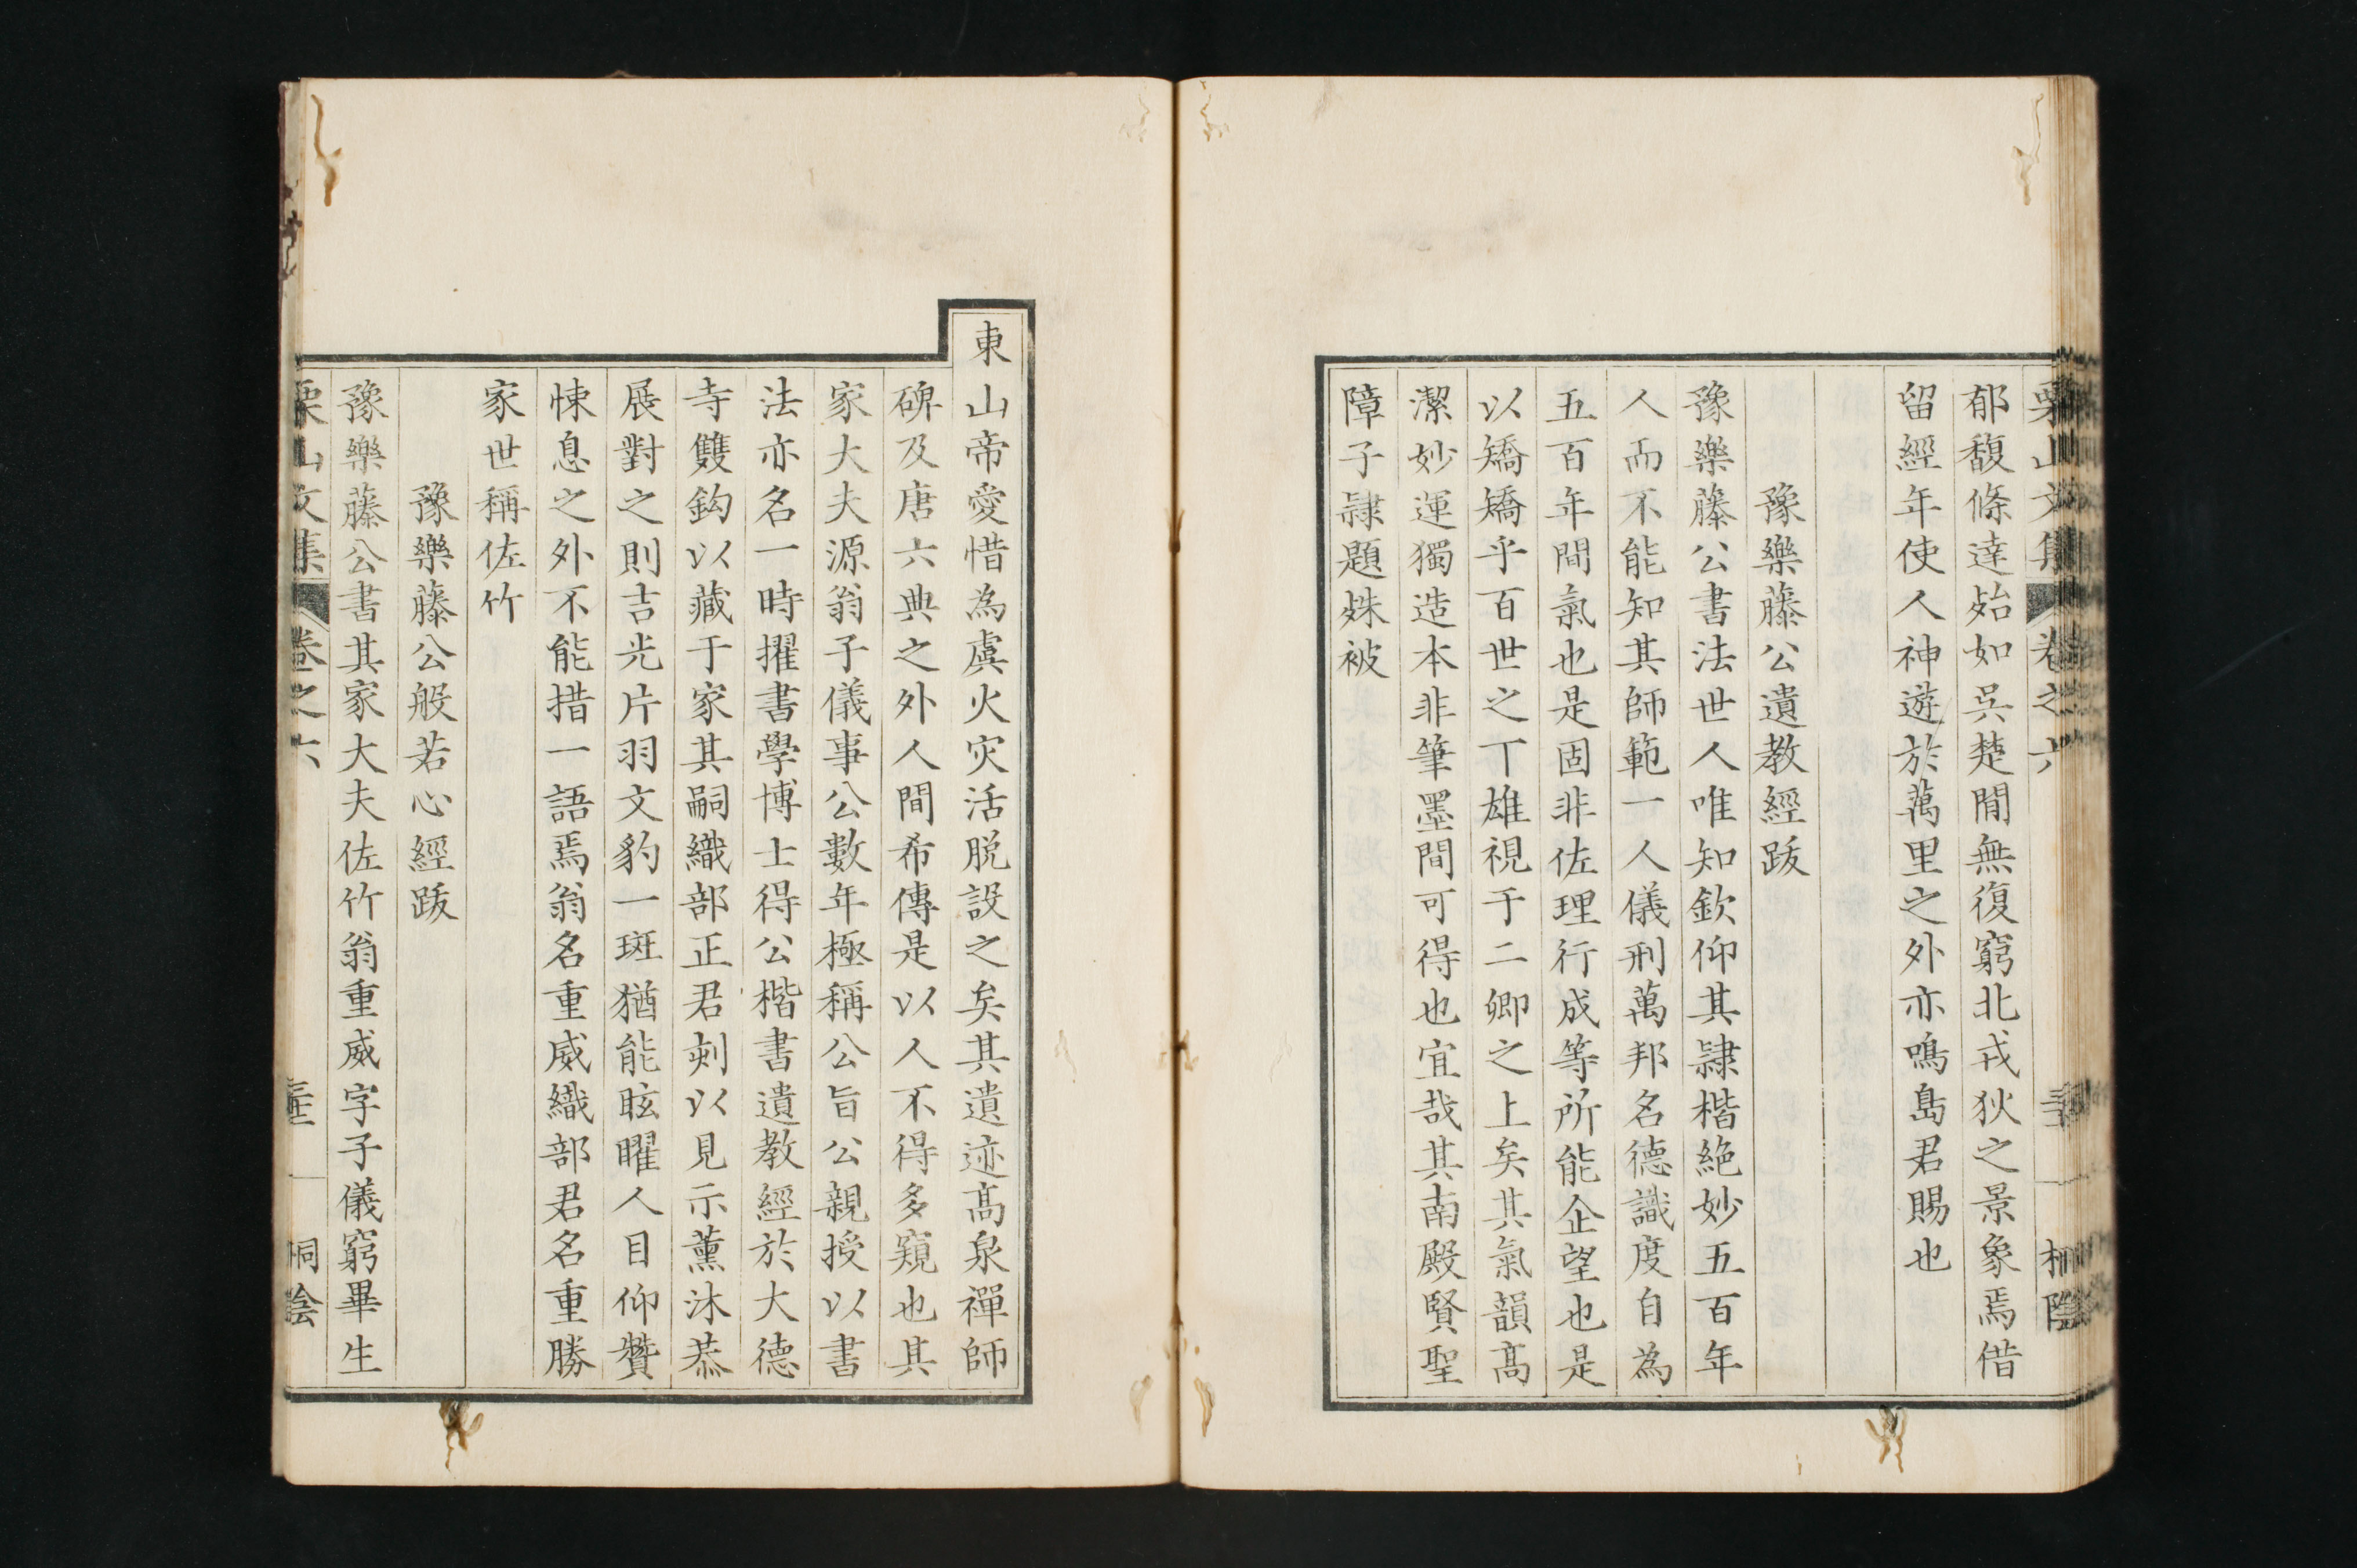 栗山文集 卷之六 桐陰
郁馥條達殆如吳楚閒無復窮北戎狄之景象焉借
留經年使人神遊於萬里之外亦鳴島君賜也
豫樂藤公遺教經跋
豫樂藤公書法世人唯知欽仰其隷楷絶妙五百年
人而不能知其師範一人儀刑萬邦名德識度自為
五百年間氣也是固非佐理行成等所能企望也是
以矯矯乎百世之下雄視于二卿之上矣其氣韻高
潔妙運獨造本非筆墨間可得也宜哉其南殿賢聖
障子隷題姝被
東山帝愛惜為虞火灾活脱設之矣其遺迹高泉禪師
碑及唐六典之外人間希傳是以人不得多窺也其
家大夫源翁子儀事公數年極稱公旨公親授以書
法亦名一時擢書學博士得公楷書遺教經於大德
寺雙鈎以藏于家其嗣織部正君刻以見示薰沐恭
展對之則吉光片羽文豹一斑猶能眩曜人目仰贊
悚息之外不能措一語焉翁名重威織部君名重勝
家世稱佐竹
豫樂藤公般若心經跋
豫樂藤公書其家大夫佐竹翁重威字子儀窮畢生
栗山文集 卷之六 桐陰